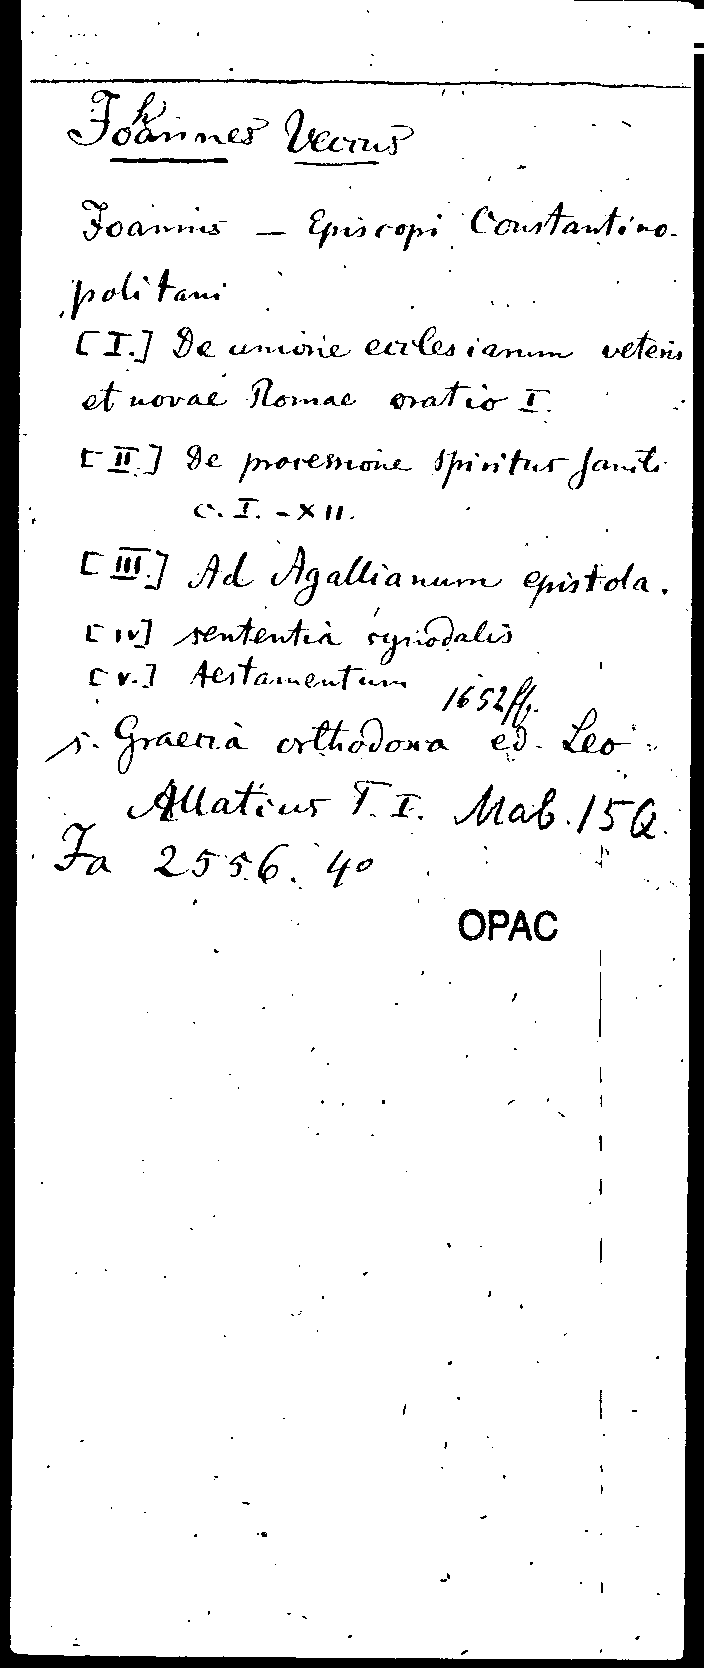 Johannes Veccus
Joannis — Episcopi Constantino-
politani
[I.] De unione ecclesiarum veteris
et novae Romae oratio I.
[II.] De processione Spiritus Sancti
c. I. - XII.
[III.] Ad Agallianum epistola.
[IV] sententia synodalis
[V.] Testamentum
1652ff.
s. Graecia orthodoxa ed. Leo
Allatius T. I. Mab. 15Q.
Fa 2556. 4°
OPAC